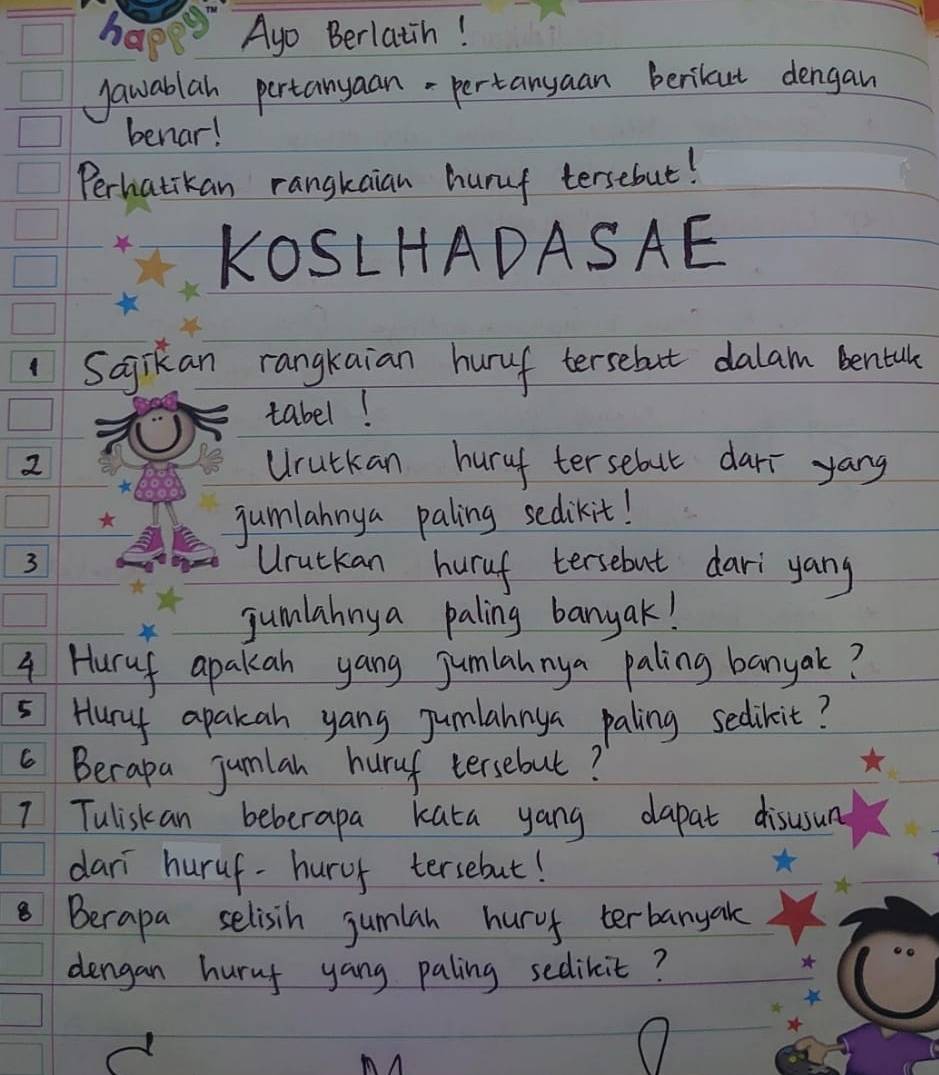 happy™ Ayo Berlatih!
Jawablah pertanyaan-pertanyaan berikut dengan
benar!
Perhatikan rangkaian huruf tersebut!
KOSLHADASAE
1 Sajikan rangkaian huruf tersebut dalam bentuk
tabel!
2 Urutkan huruf tersebut dari yang
jumlahnya paling sedikit!
3 Urutkan huruf tersebut dari yang
jumlahnya paling banyak!
4 Huruf apakah yang jumlahnya paling banyak?
5 Huruf apakah yang jumlahnya paling sedikit?
6 Berapa jumlah huruf tersebut?
7 Tuliskan beberapa kata yang dapat disusun
dari huruf-huruf tersebut!
8 Berapa selisih jumlah huruf terbanyak
dengan huruf yang paling sedikit?